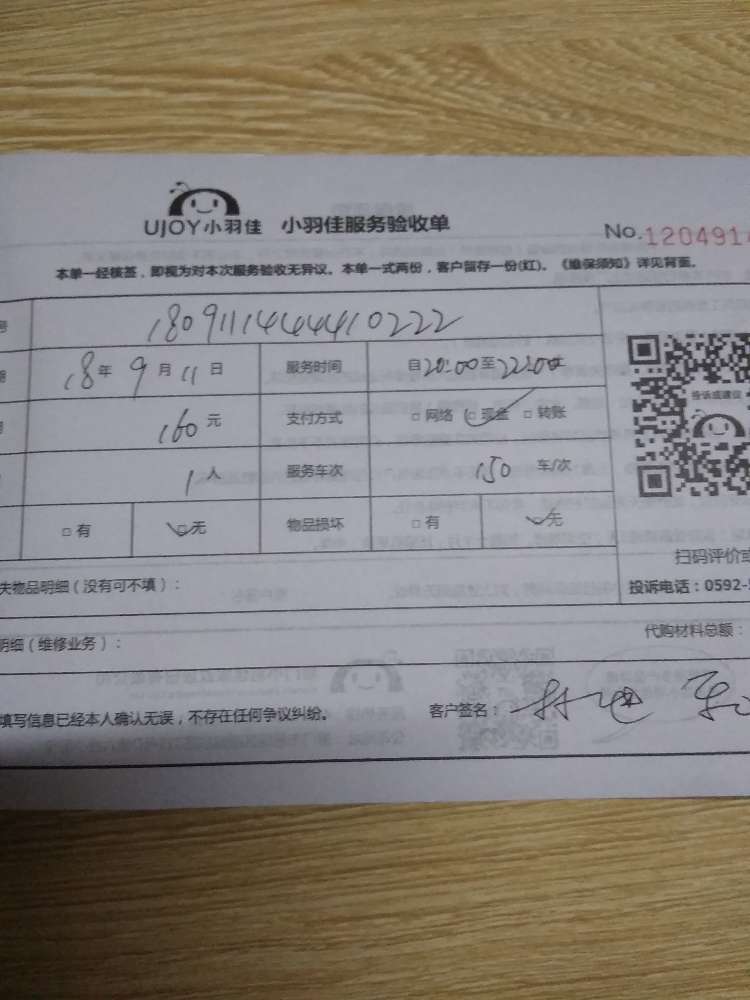 UJOY小羽佳 小羽佳服务验收单
No.1204914
本单一经核签，即视为对本次服务验收无异议。本单一式两份，客户留存一份(红)。《维保须知》详见背面。
号 1809111444410222
18年9月11日 服务时间 自20:00至22:00止
160元 支付方式 □网络 □现金 □转账
1人 服务车次 150 车/次
□有 □无 物品损坏 □有 □无
投诉或建议
扫码评价或
失物品明细（没有可不填）：
投诉电话：0592-
明细（维修业务）：
代购材料总额：
填写信息已经本人确认无误，不存在任何争议纠纷。 客户签名：